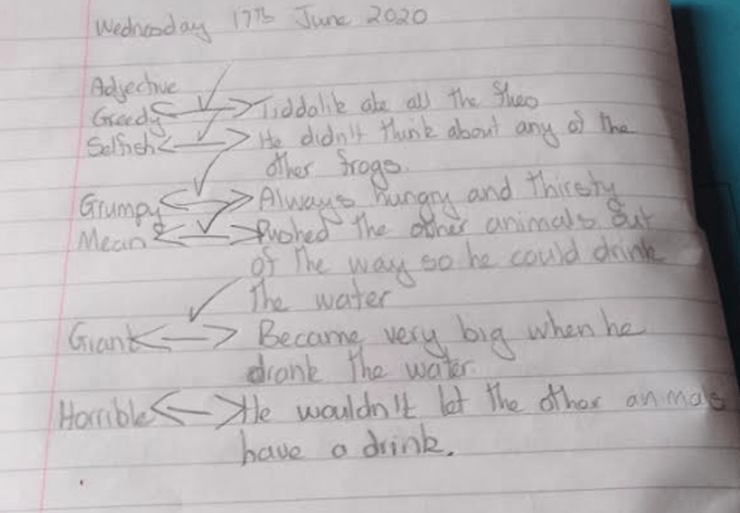 Wednesday 17th June 2020
Adjective
Greedy Tiddalik ate all the flies
Selfish He didn't think about any of the
other frogs.
Grumpy Always hungry and thirsty
Mean Pushed the other animals out
of the way so he could drink
the water
Giant Became very big when he
drank the water.
Horrible He wouldn't let the other animals
have a drink.